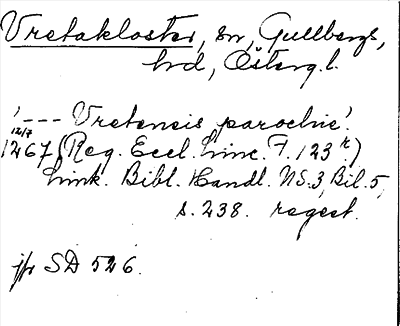 Vretakloster, sn, Gullbergs,
hd, Österg.l.
'--- Vretensis parochie'.
12/7
1267 (Reg. Eccl. Linc. F. 123 r.)
Link. Bibl. Handl. NS.3, Bil. 5,
s. 238. regest.
jfr SD 526.